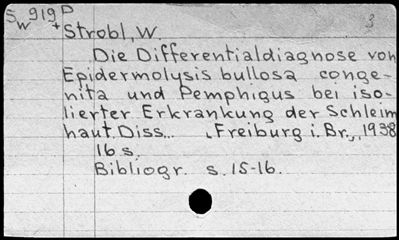 Sw 919 D 3
+Strobl, W.
Die Differentialdiagnose von
Epidermolysis bullosa conge-
nita und Pemphigus bei iso-
lierter Erkrankung der Schleim
haut. Diss... Freiburg i. Br., 1938
16 s.
Bibliogr. s. 15-16.